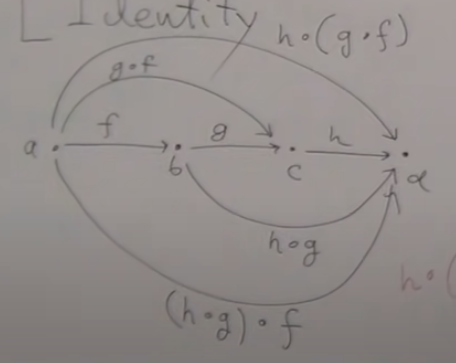 [ Identity
h∘(g∘f)
g∘f
a f b g c h d
h∘g
(h∘g)∘f
h∘(